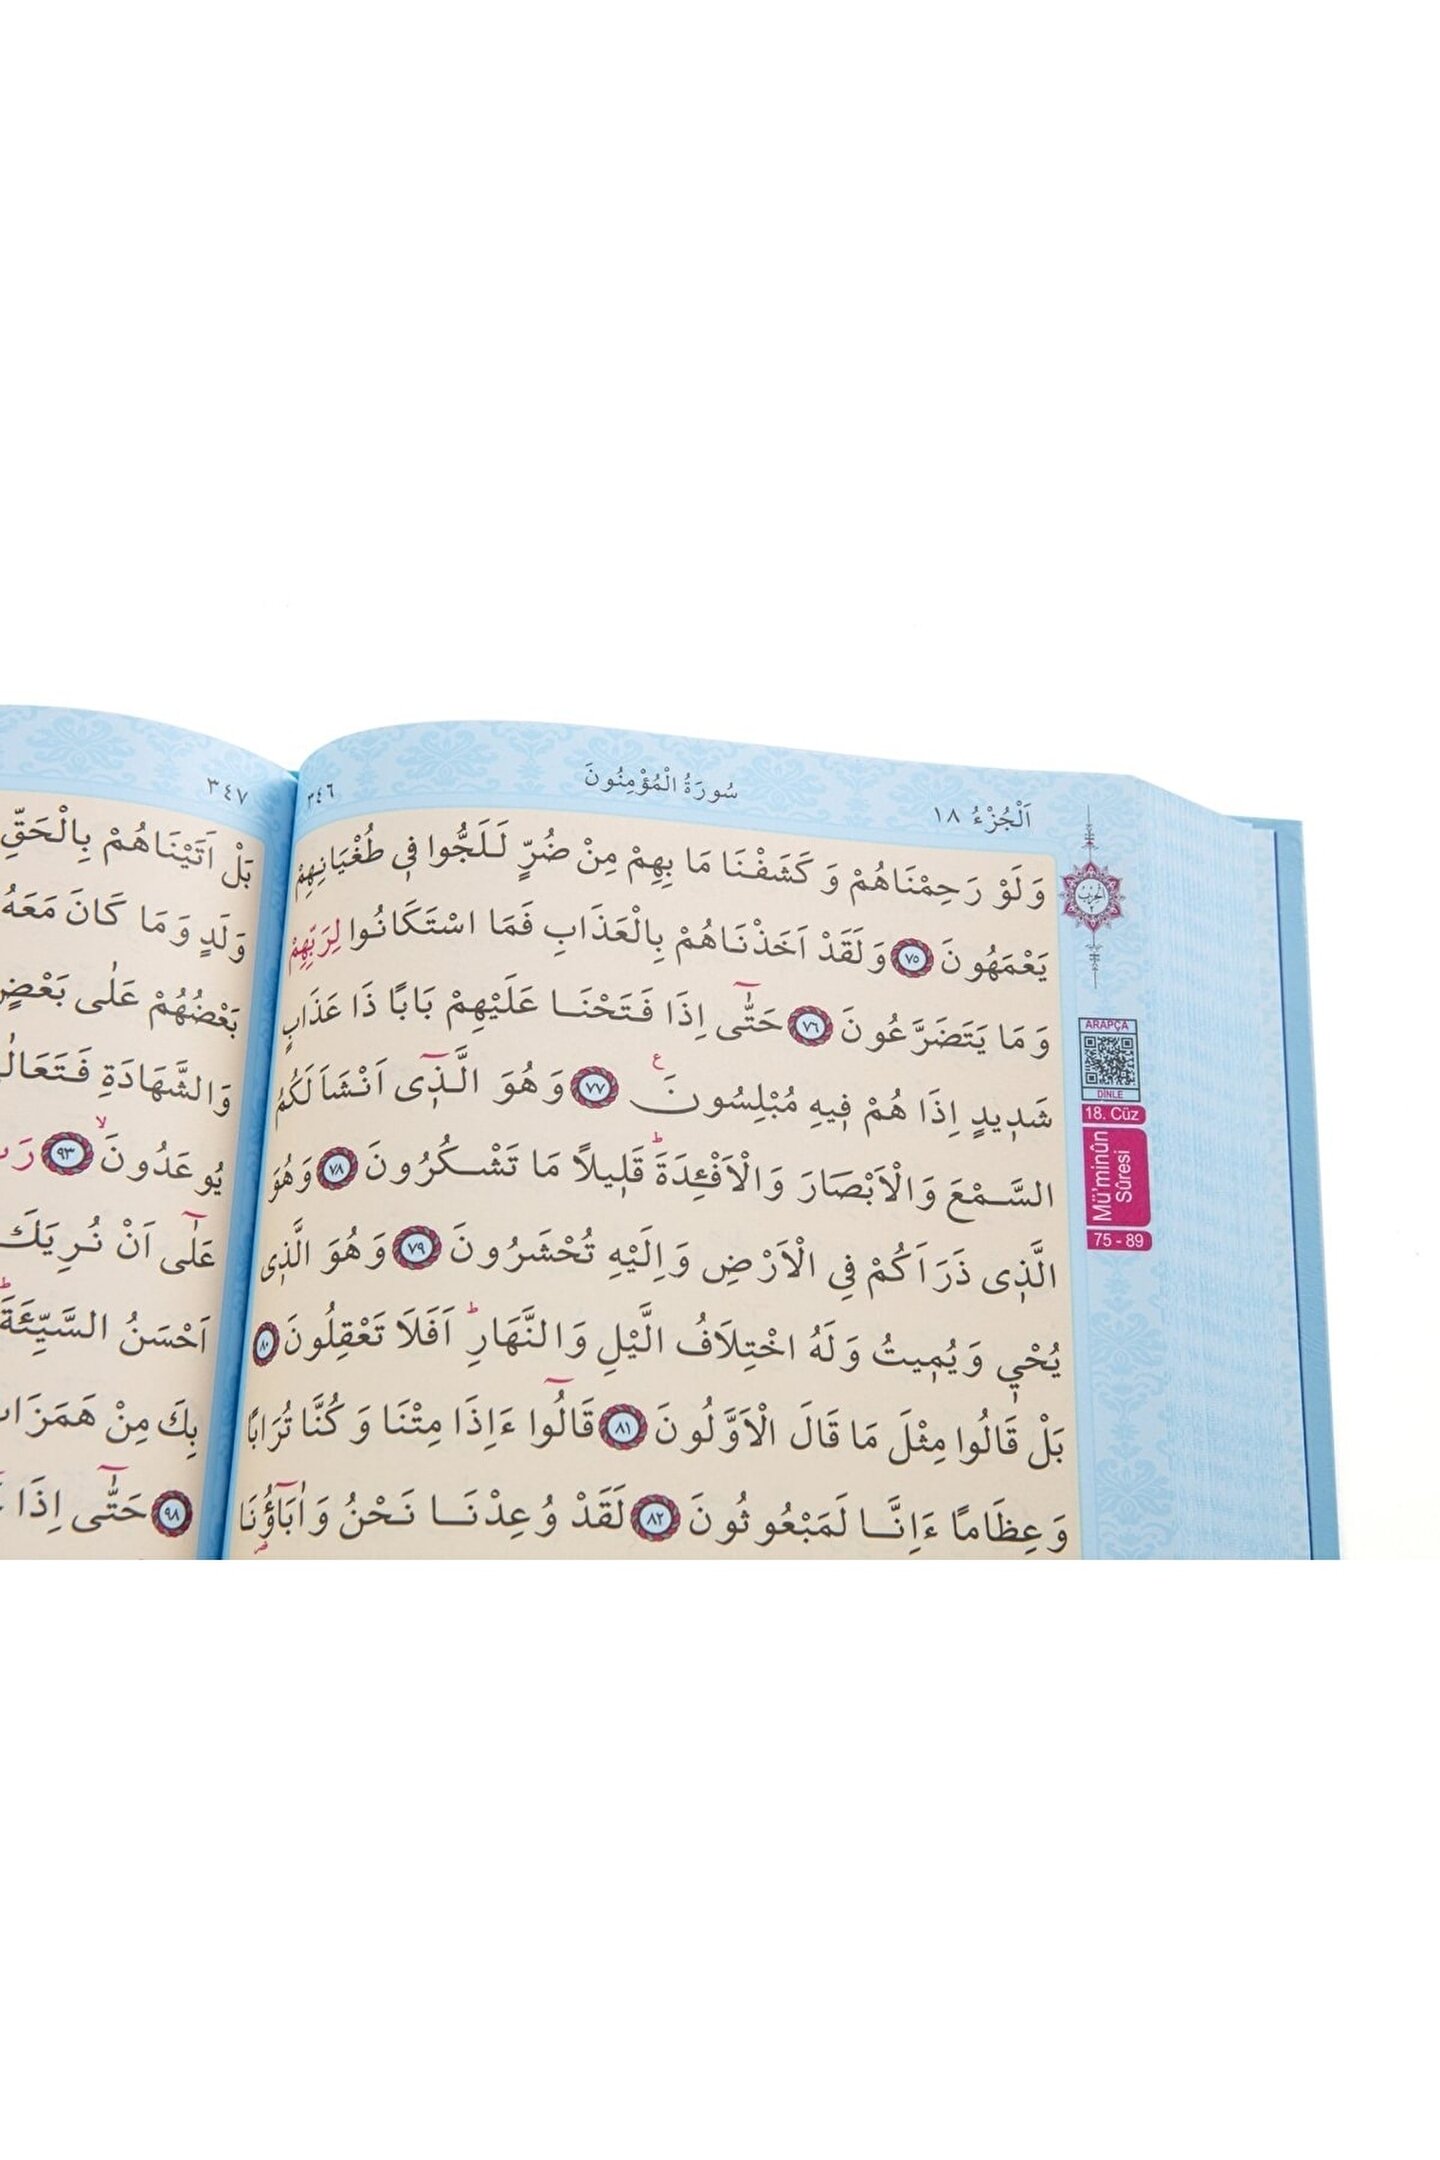 سُورَةُ الْمُؤْمِنُونَ
اَلْجُزْءُ ١٨
٣٤٦
وَلَوْ رَحِمْنَاهُمْ وَكَشَفْنَا مَا بِهِمْ مِنْ ضُرٍّ لَلَجُّوا فٖى طُغْيَانِهِمْ
يَعْمَهُونَ ٧٥ وَلَقَدْ اَخَذْنَاهُمْ بِالْعَذَابِ فَمَا اسْتَكَانُوا لِرَبِّهِمْ
وَمَا يَتَضَرَّعُونَ ٧٦ حَتّٰٓى اِذَا فَتَحْنَا عَلَيْهِمْ بَابًا ذَا عَذَابٍ
شَدٖيدٍ اِذَا هُمْ فٖيهِ مُبْلِسُونَ ع ٧٧ وَهُوَ الَّذٖٓى اَنْشَاَ لَكُمُ
السَّمْعَ وَالْاَبْصَارَ وَالْاَفْـِٔدَةَ ط قَلٖيلًا مَا تَشْكُرُونَ ٧٨ وَهُوَ
الَّذٖى ذَرَاَكُمْ فِى الْاَرْضِ وَاِلَيْهِ تُحْشَرُونَ ٧٩ وَهُوَ الَّذٖى
يُحْيٖ وَيُمٖيتُ وَلَهُ اخْتِلَافُ الَّيْلِ وَالنَّهَارِ ط اَفَلَا تَعْقِلُونَ ٨٠
بَلْ قَالُوا مِثْلَ مَا قَالَ الْاَوَّلُونَ ٨١ قَالُٓوا ءَاِذَا مِتْنَا وَكُنَّا تُرَابًا
وَعِظَامًا ءَاِنَّا لَمَبْعُوثُونَ ٨٢ لَقَدْ وُعِدْنَا نَحْنُ وَاٰبَٓاؤُنَا
ARAPÇA
DİNLE
18. Cüz
Mü'minûn
Sûresi
75 - 89
٣٤٧
بَلْ اَتَيْنَاهُمْ بِالْحَقِّ
وَلَدٍ وَمَا كَانَ مَعَهُ
بَعْضُهُمْ عَلٰى بَعْضٍ
وَالشَّهَادَةِ فَتَعَالٰى
يُوعَدُونَ لا ٩٣
عَلٰٓى اَنْ نُرِيَكَ
اَحْسَنُ السَّيِّئَةَ ط
بِكَ مِنْ هَمَزَاتِ
٩٨ حَتّٰٓى اِذَا